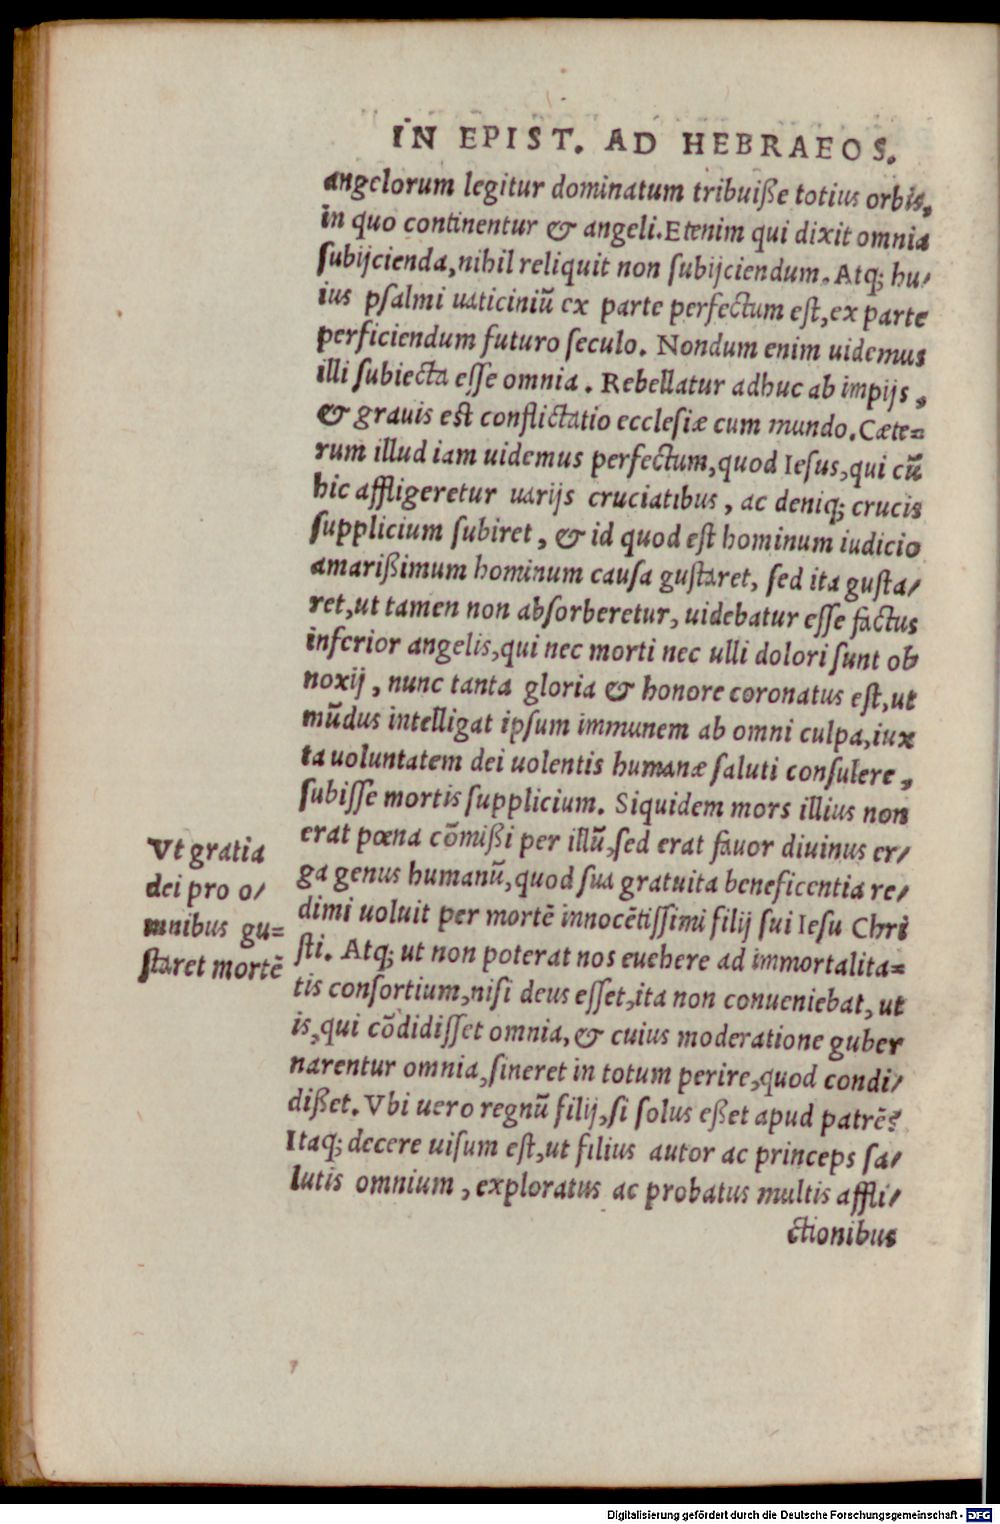 IN EPIST. AD HEBRAEOS.
angelorum legitur dominatum tribuiße totius orbis,
in quo continentur & angeli. Etenim qui dixit omnia
ſubijcienda, nihil reliquit non ſubijciendum. Atq; hu/
ius pſalmi uaticiniũ ex parte perfectum eſt, ex parte
perficiendum futuro ſeculo. Nondum enim uidemus
illi ſubiecta eſſe omnia. Rebellatur adhuc ab impijs,
& grauis eſt conflictatio eccleſiæ cum mundo. Cæte=
rum illud iam uidemus perfectum, quod Ieſus, qui cũ
hic affligeretur uarijs cruciatibus, ac deniq; crucis
ſupplicium ſubiret, & id quod eſt hominum iudicio
amarißimum hominum cauſa guſtaret, ſed ita guſta/
ret, ut tamen non abſorberetur, uidebatur eſſe factus
inferior angelis, qui nec morti nec ulli dolori ſunt ob
noxij, nunc tanta gloria & honore coronatus eſt, ut
mũdus intelligat ipſum immunem ab omni culpa, iux
ta uoluntatem dei uolentis humanæ ſaluti conſulere,
ſubiſſe mortis ſupplicium. Siquidem mors illius non
erat pœna cõmißi per illũ, ſed erat fauor diuinus er/
ga genus humanũ, quod ſua gratuita beneficentia re/
dimi uoluit per mortẽ innocẽtiſſimi filij ſui Ieſu Chri
ſti. Atq; ut non poterat nos euehere ad immortalita=
tis conſortium, niſi deus eſſet, ita non conueniebat, ut
is, qui cõdidiſſet omnia, & cuius moderatione guber
narentur omnia, ſineret in totum perire, quod condi/
dißet. Vbi uero regnũ filij, ſi ſolus eßet apud patrẽ?
Itaq; decere uiſum eſt, ut filius autor ac princeps ſa/
lutis omnium, exploratus ac probatus multis affli/
ctionibus
Vt gratia
dei pro o/
mnibus gu=
ſtaret mortẽ
Digitalisierung gefördert durch die Deutsche Forschungsgemeinschaft - DFG